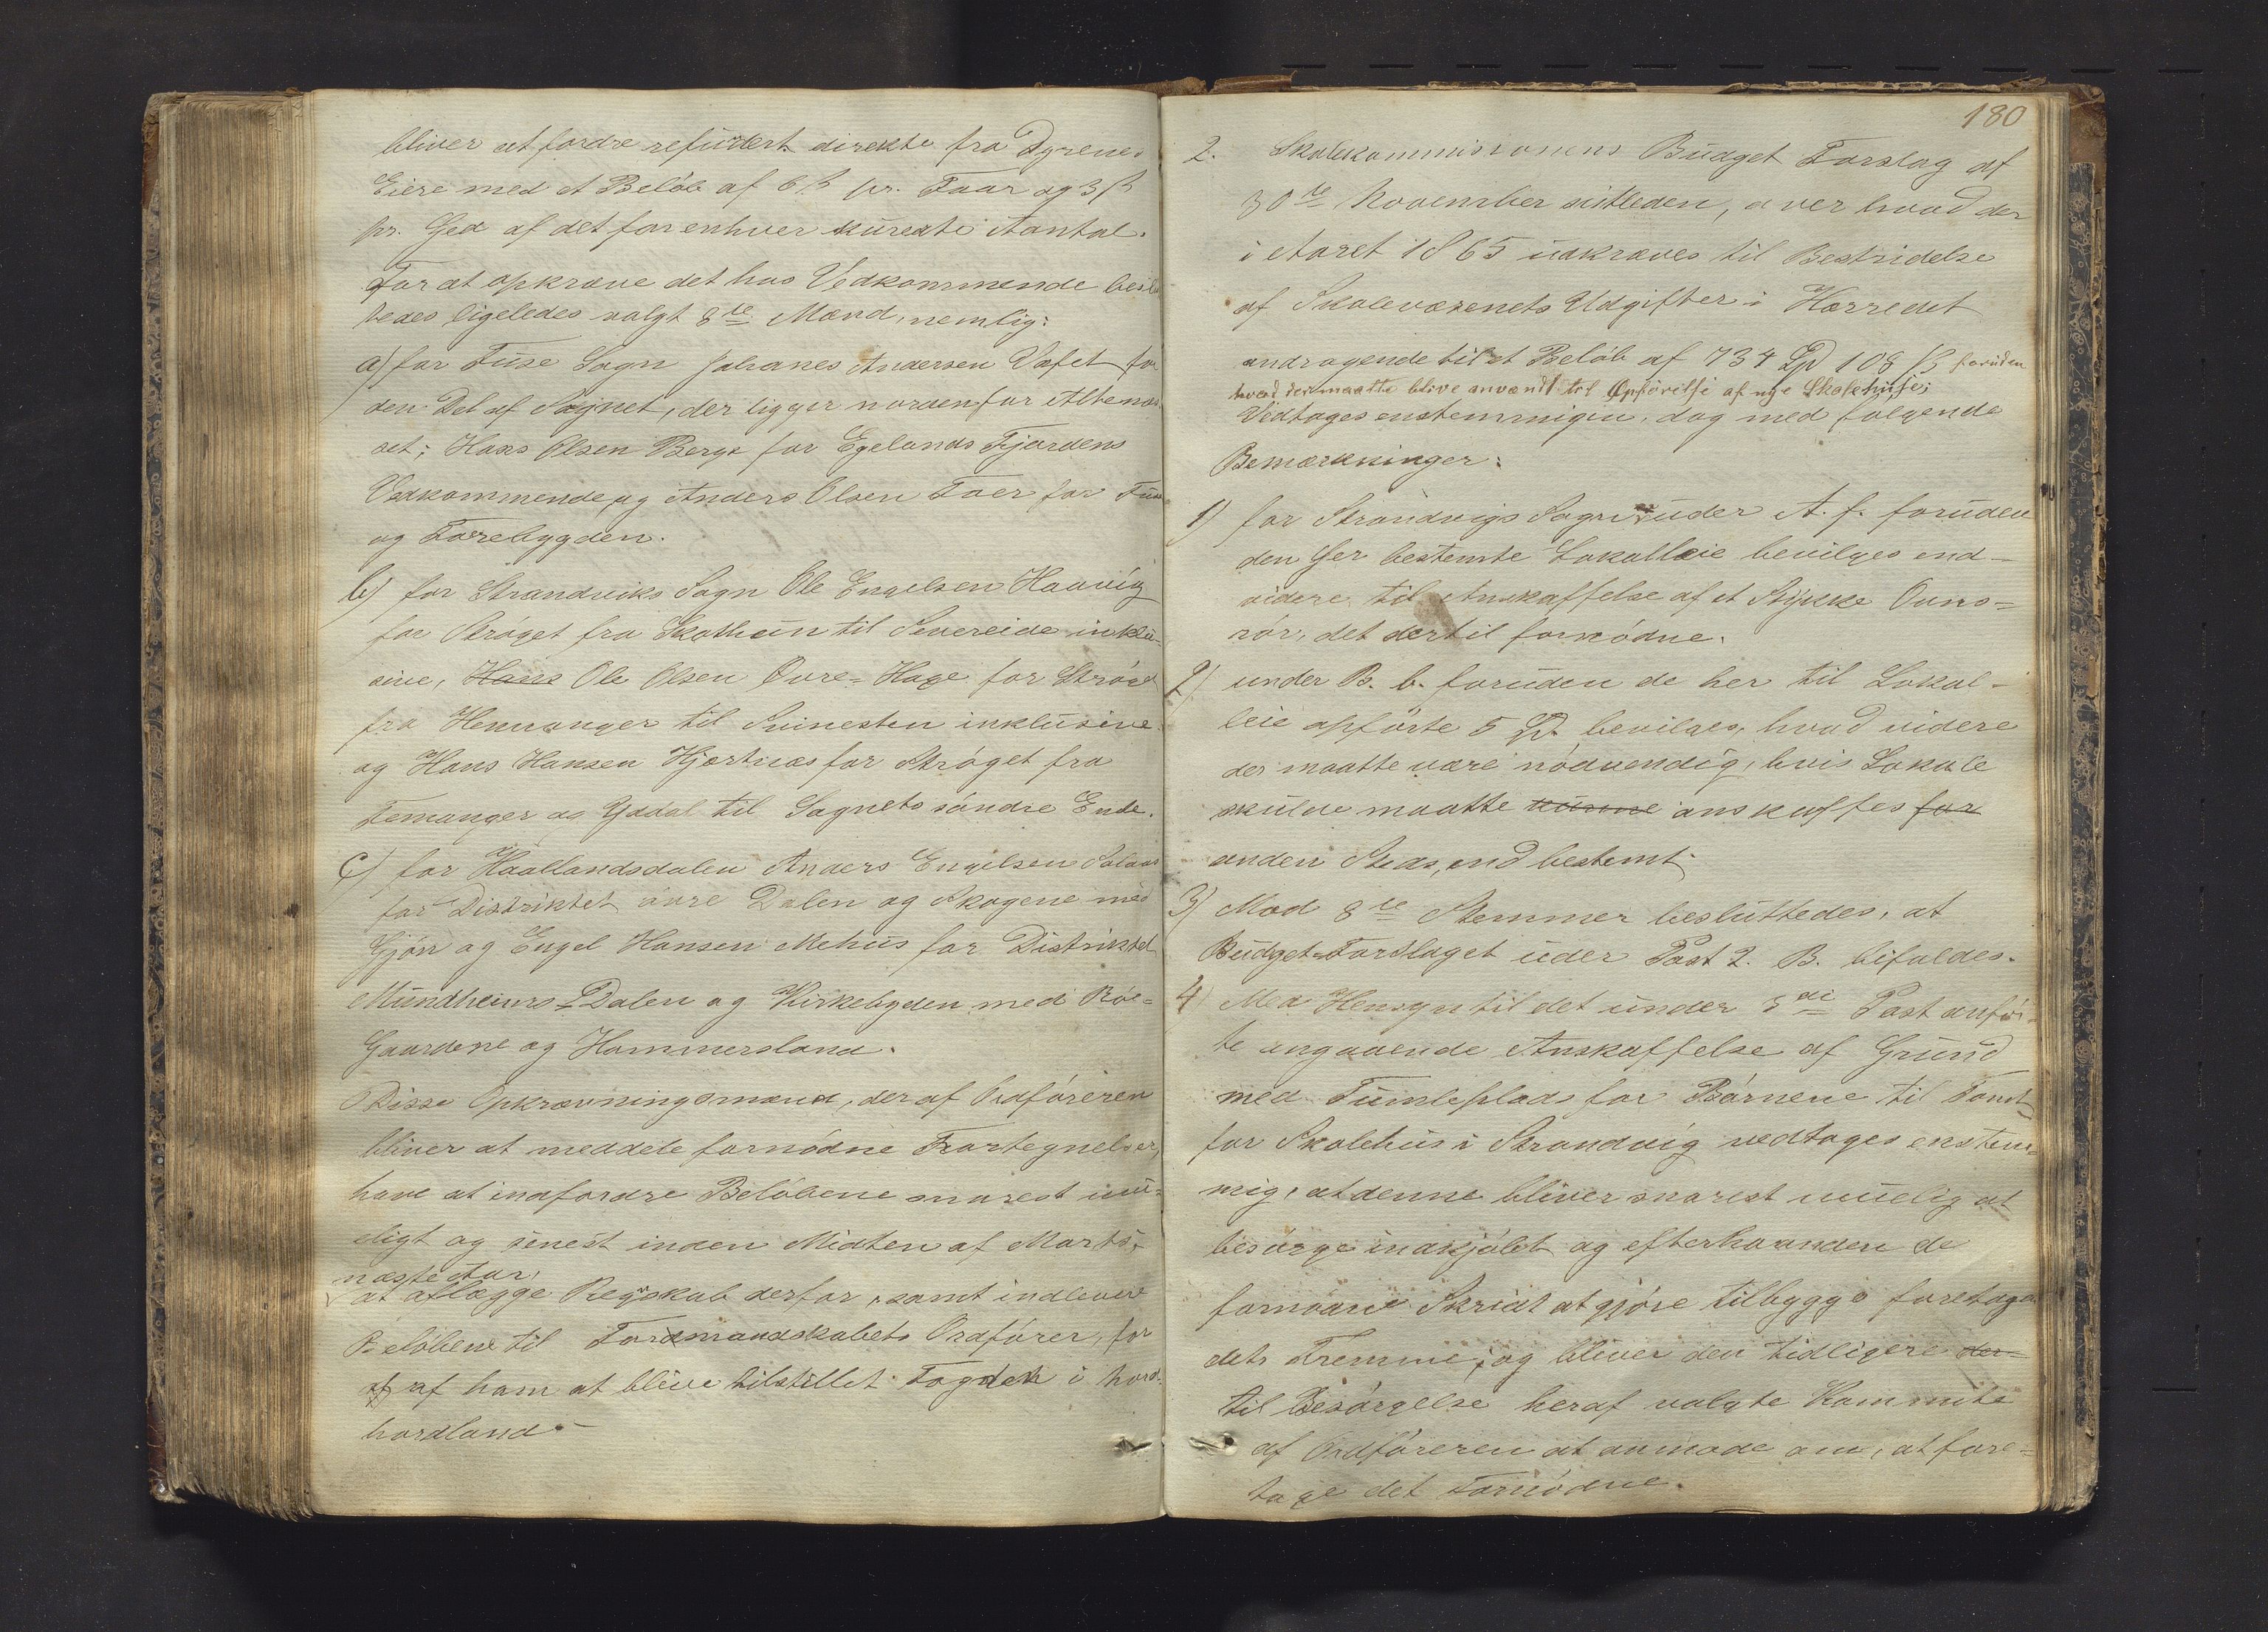 bliver at fordre refundert direkte fra Dyrenes
Eiere med et Beløb af 6 ß pr. Faar og 3 ß
pr. Ged af det for enhver kurerte Aantal.
For at opkræve det hos Vedkommende beslut
tedes ligeledes valgt 8te Mænd, nemlig:
a) for Fuse Sogn Johanes Andersen Vafet for
den Del af Sognet, der ligger nordenfor Altenæs
set; Hans Olsen Berge for Egelands Fjordens
Vedkommende, og Anders Olsen Toer for Fuse
og Torebygden.
b) for Strandviks Sogn Ole Engelsen Haavig
for Strøget fra Skothun til Severeide inklu-
sive, Hans Ole Olsen Øvre-Hage for Strøget
fra Hennanger til Svinesten inklusive
og Hans Hansen Hjortnæs for Strøget fra
Femanger og Yddal til Sognets søndre Ende.
c) for Haallandsdalen Anders Engelsen
for Distriktet øvre Dalen og Skogene med
Gjøn og Engel Hansen Mehus for Distriktet
Mundheims-Dalen og Kirkebygden med Røe-
Gaardene og Hammersland.
Disse Opkrævningsmænd, der af Ordføreren
bliver at meddele fornødne Fortegnelser,
have at indfordre Beløbene snarest mu-
eligt og senest inden Midten af Marts
næste Aar,
at aflægge Regskab derfor, samt indlevere
Beløbene til Formandskabets Ordfører, for
af ham at blive tilstillet Fogden i Nord-
hordland.
180
2. Skolekommissionens Budget Forslag af
30te November sistleden, over hvad der
i Aaret 1865 udkræves til Bestridelse
af Skolevæsenets Udgifter i Herredet
andragende til et Beløb af 734 Spd 108 ß foruden
hvad der maatte blive anvændt til Opførelse af nye Skolehuse;
Vedtages enstemmigen, dog med følgende
Bemærkninger:
1) for Strandvigs Sogn uder A. f. foruden
den her bestemte Lokalleie bevilges end-
videre til Anskaffelse af et Stykke Ovns-
rør, det dertil fornødne.
2) under B. b. foruden de her til Lokal-
leie opførte 5 Spd. bevilges, hvad videre
der maatte være nødvendig, hvis Lokale
skulde maatte kunne anskaffes for
anden Steds, end bestemt.
3) Mod 8te Stemmer besluttedes, at
Budget-Forslaget uder Post 2. B. bifaldes.
4) Med Hensyn til det under 3die Post anfør-
te angaaende Anskaffelse af Grund
med Tumleplads for Børnene til Tomt
for Skolehus i Strandvig vedtages enstem-
mig, at denne bliver snarest muelig at
besørge indkjøbt og efterhaanden de
fornødne Skridt at gjøre tilbygge foretage
dets Fremme, og bliver den tidligere der
til Besørgelse heraf valgte Kommite
af Ordføreren at anmode om, at fore-
tage det Fornødne.